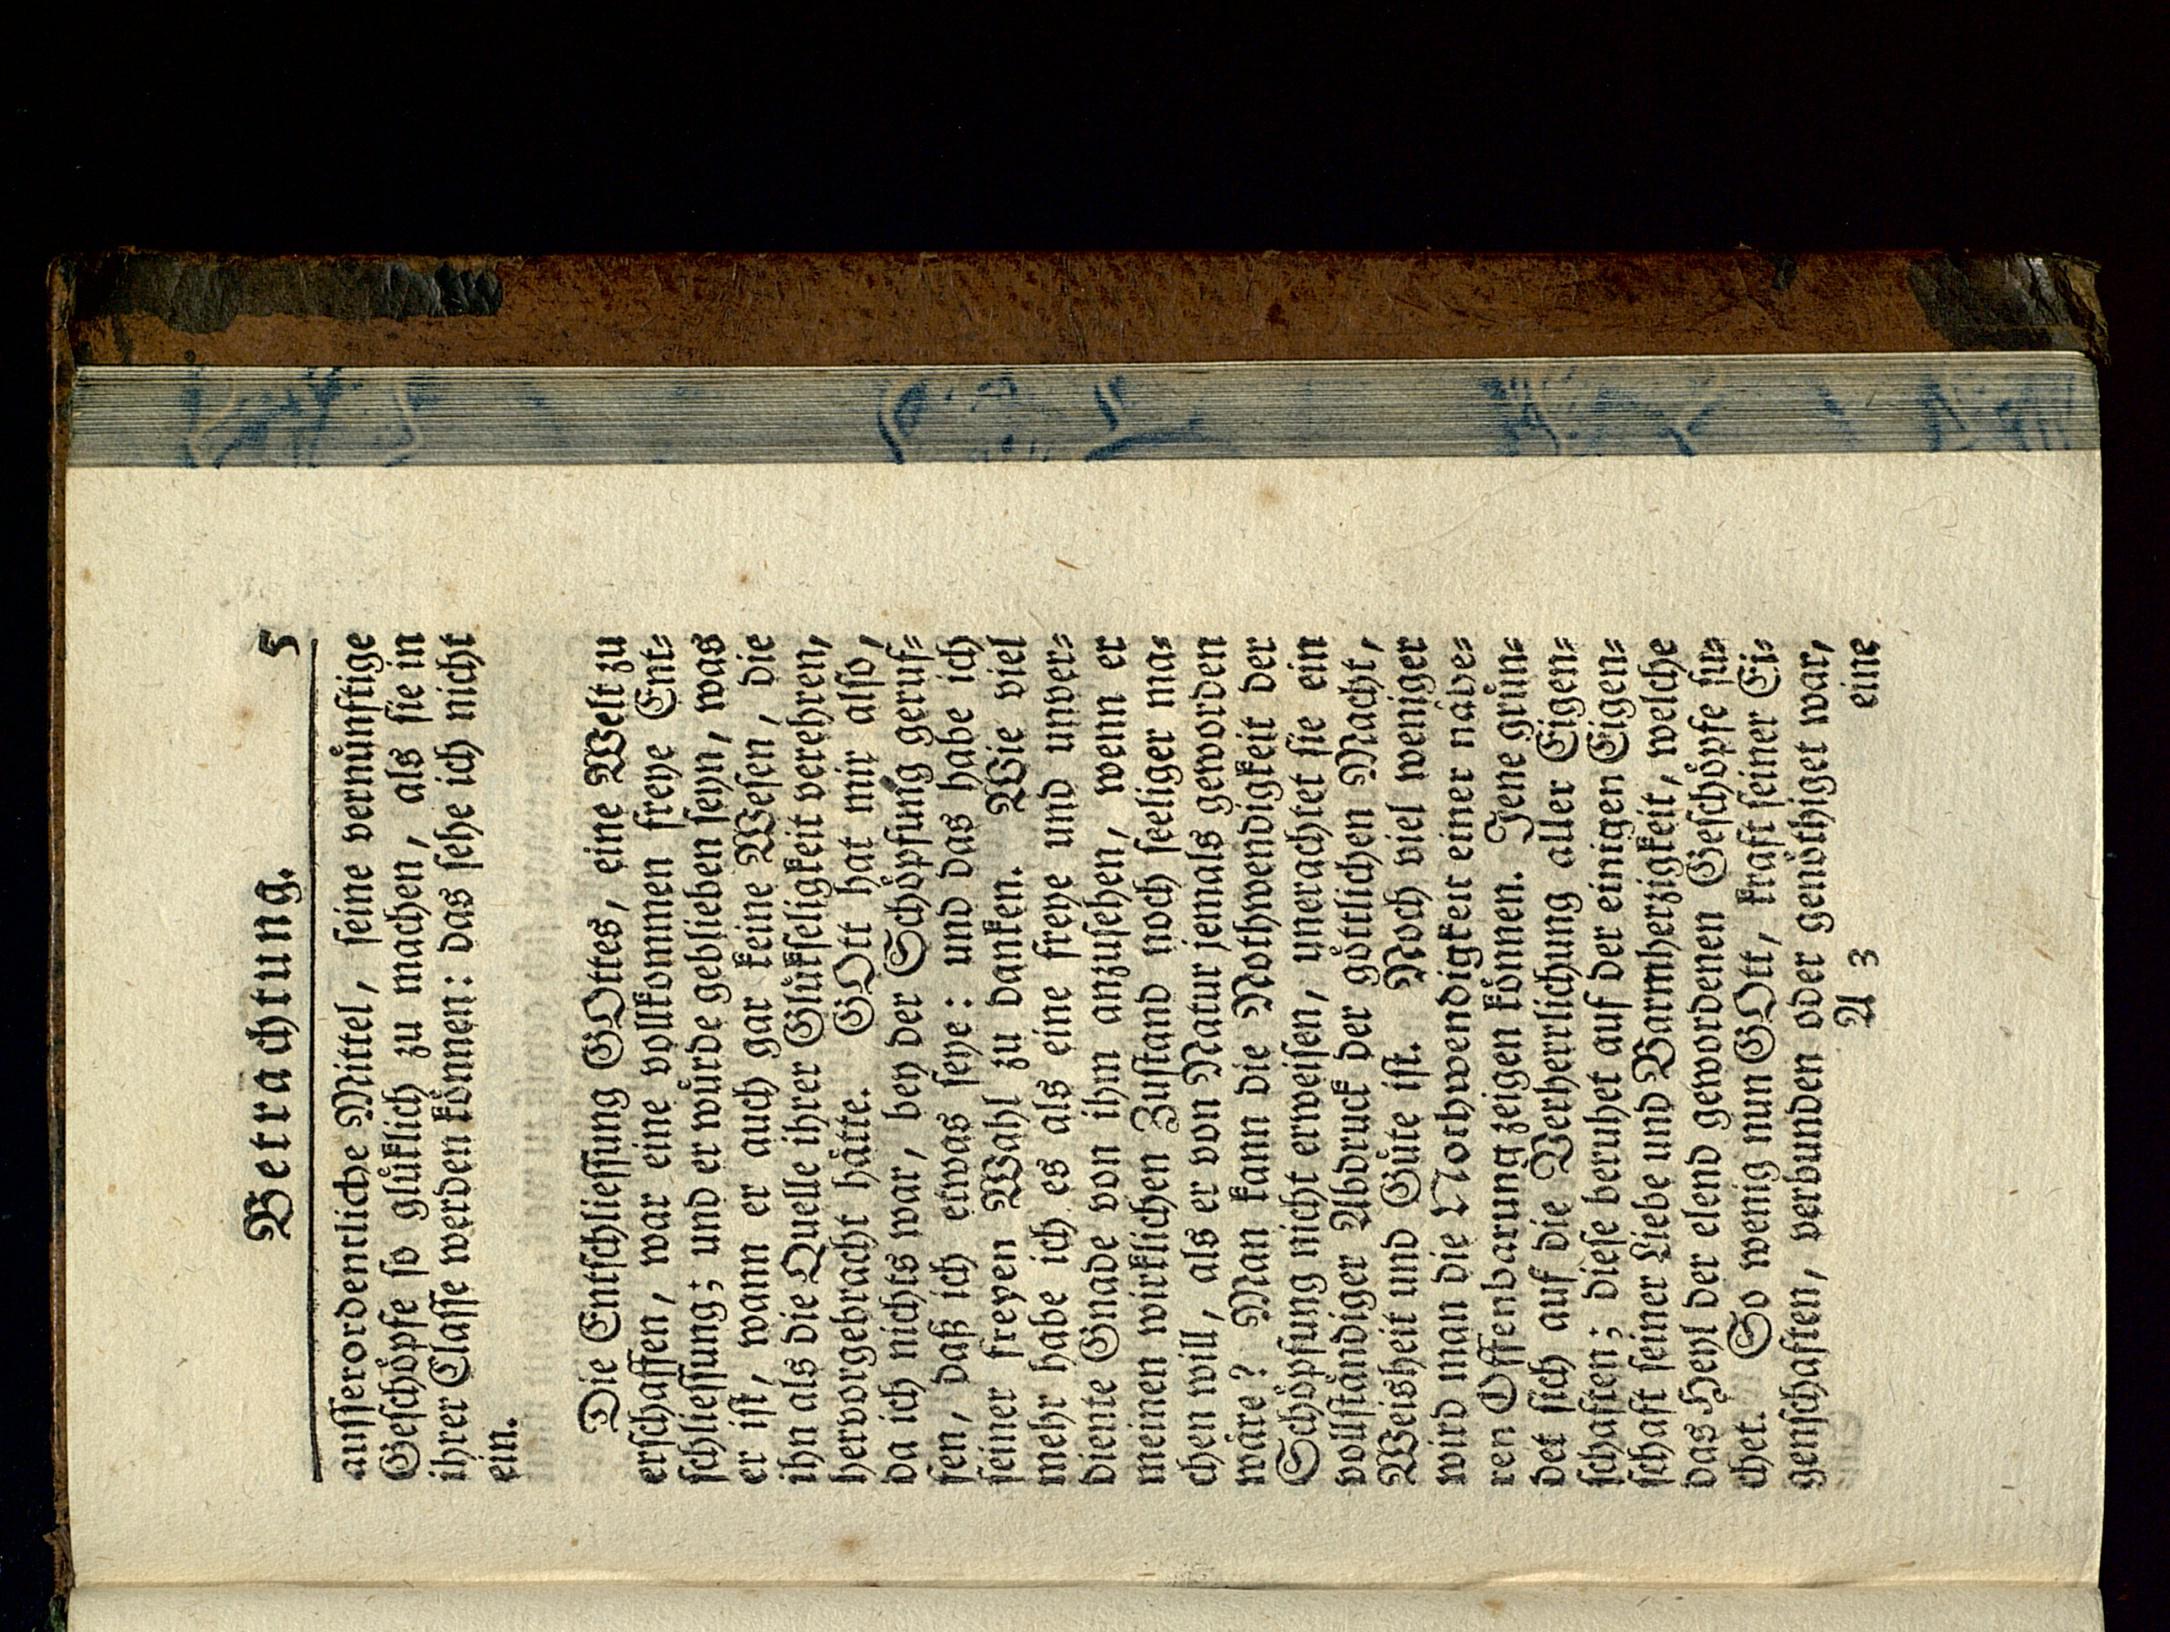 Betrachtung. 5
ausserordentliche Mittel, seine vernünftige
Geschöpfe so glüklich zu machen, als sie in
ihrer Classe werden können: das sehe ich nicht
ein.
Die Entschliessung GOttes, eine Welt zu
erschaffen, war eine vollkommen freye Ent-
schliessung; und er würde geblieben seyn, was
er ist, wann er auch gar keine Wesen, die
ihn als die Quelle ihrer Glükseligkeit verehren,
hervorgebracht hätte. GOtt hat mir also,
da ich nichts war, bey der Schöpfung geruf-
fen, daß ich etwas seye: und das habe ich
seiner freyen Wahl zu danken. Wie viel
mehr habe ich es als eine freye und unver-
diente Gnade von ihm anzusehen, wenn er
meinen wirklichen Zustand noch seeliger ma-
chen will, als er von Natur jemals geworden
wäre? Man kann die Nothwendigkeit der
Schöpfung nicht erweisen, unerachtet sie ein
vollständiger Abdruck der göttlichen Macht,
Weisheit und Güte ist. Noch viel weniger
wird man die Nothwendigkeit einer nähe-
ren Offenbarung zeigen können. Jene grün-
det sich auf die Verherrlichung aller Eigen-
schaften; diese beruhet auf der einigen Eigen-
schaft seiner Liebe und Barmherzigkeit, welche
das Heyl der elend gewordenen Geschöpfe su-
chet. So wenig nun GOtt, kraft seiner Ei-
genschaften, verbunden oder genöthiget war,
A 3 eine